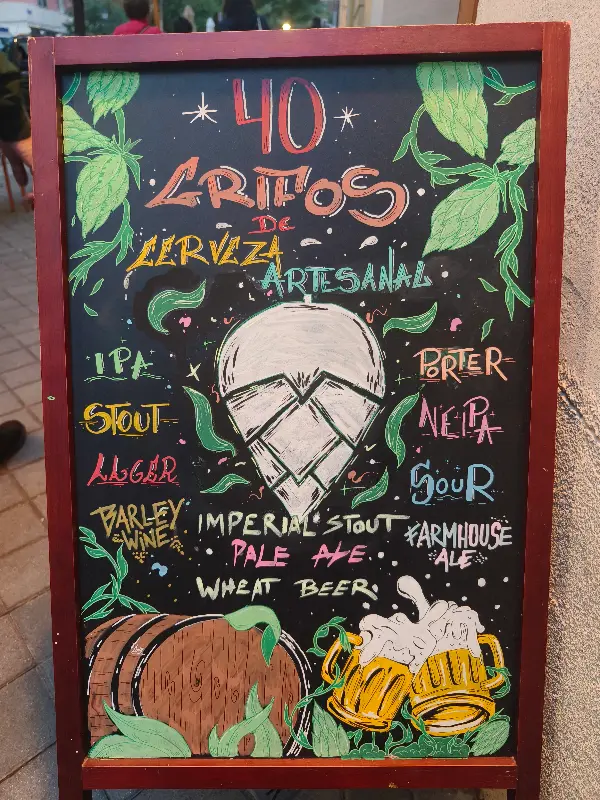 40
GRIFOS
DE
CERVEZA
ARTESANAL
IPA
STOUT
LAGER
BARLEY
WINE
IMPERIAL STOUT
PALE ALE
WHEAT BEER
PORTER
NEIPA
SOUR
FARMHOUSE
ALE